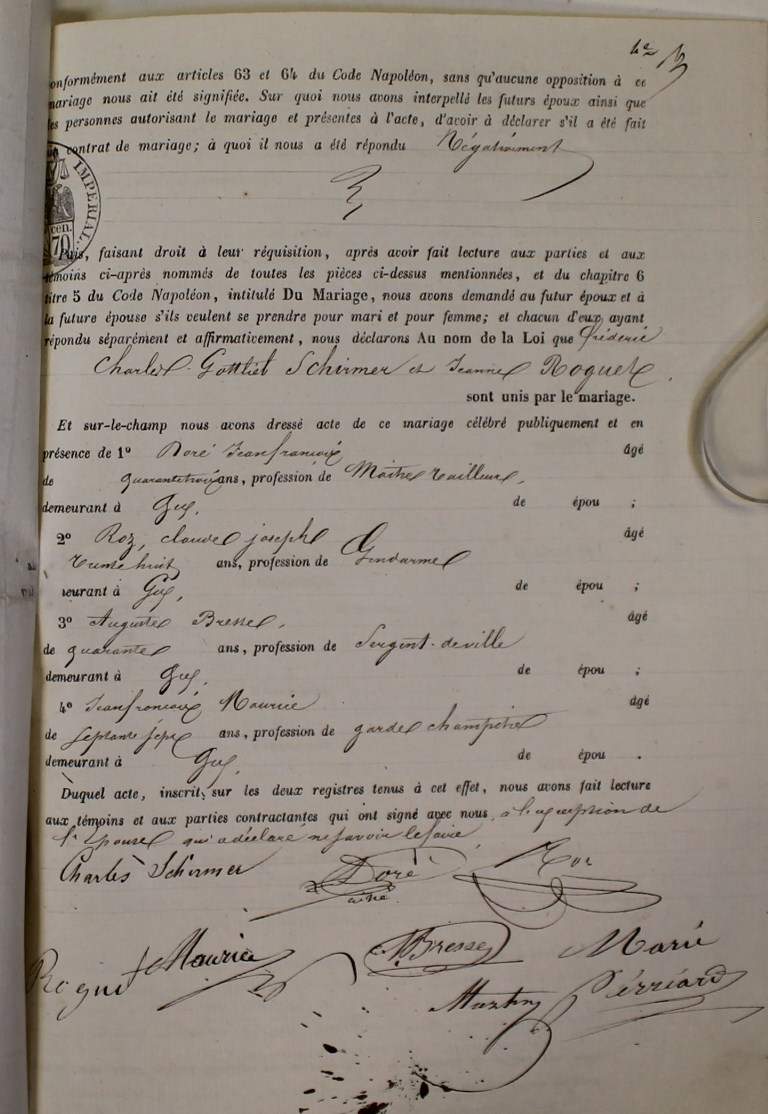 42
onformément aux articles 63 et 64 du Code Napoléon, sans qu'aucune opposition à ce
mariage nous ait été signifiée. Sur quoi nous avons interpellé les futurs époux ainsi que
les personnes autorisant le mariage et présentes à l'acte, d'avoir à déclarer s'il a été fait
contrat de mariage; à quoi il nous a été répondu Négativement
IMPERIAL.
cen.
70
Puis, faisant droit à leur réquisition, après avoir fait lecture aux parties et aux
témoins ci-après nommés de toutes les pièces ci-dessus mentionnées, et du chapitre 6
titre 5 du Code Napoléon, intitulé Du Mariage, nous avons demandé au futur époux et à
la future épouse s'ils veulent se prendre pour mari et pour femme; et chacun d'eux ayant
répondu séparément et affirmativement, nous déclarons Au nom de la Loi que fréderic
Charles Gottliet Schirmer et Jeanne Roguet
sont unis par le mariage.
Et sur-le-champ nous avons dressé acte de ce mariage célébré publiquement et en
présence de 1º Doré Jeanfrançois âgé
de quarantetrois ans, profession de Maitre tailleur,
demeurant à Gex, de épou ;
2º Roz, claude joseph âgé
trente huit ans, profession de Gendarme
eurant à Gex, de épou ;
3º Auguste Bresse, âgé
de quarante ans, profession de Sergent-deville
demeurant à Gex, de épou ;
4º Jeanfrançois Maurice âgé
de septante sept ans, profession de garde champêtre
demeurant à Gex, de épou .
Duquel acte, inscrit, sur les deux registres tenus à cet effet, nous avons fait lecture
aux témoins et aux parties contractantes qui ont signé avec nous, à l'exception de
l'Epouse qui a déclaré ne savoir le faire,
Charles Schirmer Doré Roz
ainé
Roguet Maurice Bresse Marie
Perréard